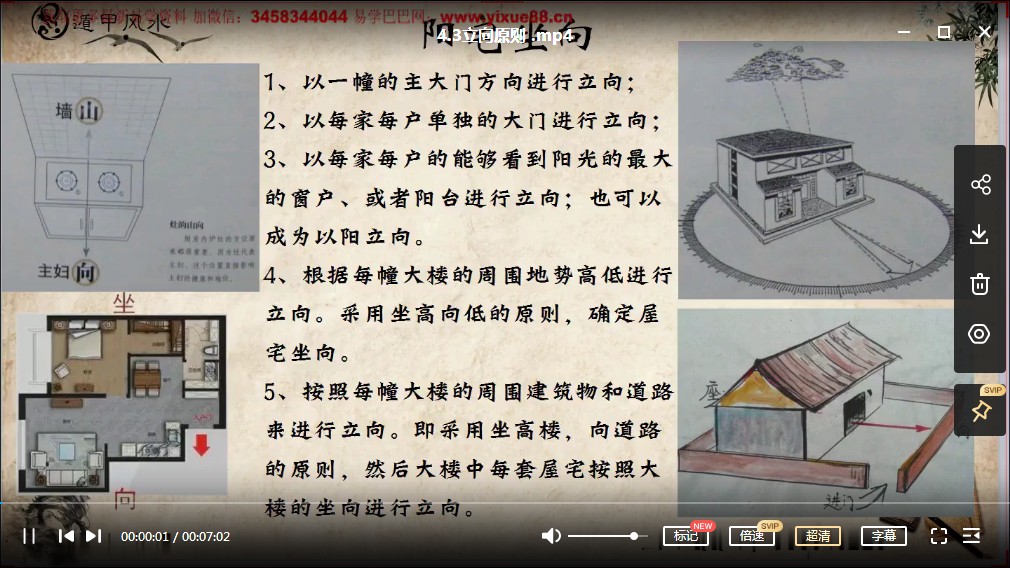 遁甲风水
资料 加微信：3458344044 易学巴巴网：www.yixue88.cn
阳宅坐向
4.3立向原则 .mp4
1、以一幢的主大门方向进行立向；
2、以每家每户单独的大门进行立向；
3、以每家每户的能够看到阳光的最大
的窗户、或者阳台进行立向；也可以
成为以阳立向。
4、根据每幢大楼的周围地势高低进行
立向。采用坐高向低的原则，确定屋
宅坐向。
5、按照每幢大楼的周围建筑物和道路
来进行立向。即采用坐高楼，向道路
的原则，然后大楼中每套屋宅按照大
楼的坐向进行立向。
墙 山
灶的山向
主妇 向
坐
向
座
进门
SVIP
00:00:01 / 00:07:02
标记
NEW
倍速
SVIP
超清
字幕